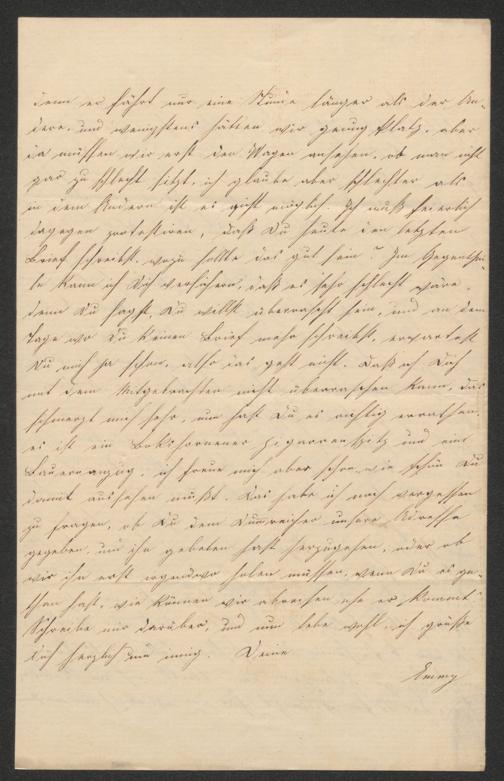 denn er fährt nur eine Stunde länger als der An-
dere, und wenigstens hätten wir genug Platz, aber
da müssen wir erst den Wagen ansehen, ob man nicht
gar zu schlecht sitzt, ich glaube aber schlechter als
in dem Andern ist es nicht möglich. Ich muß feierlich
dagegen protestiren, daß Du heute den letzten
Brief schreibst, wozu sollte das gut sein? Im Gegenthei-
le kann ich Dich versichern, daß es sehr schlecht wäre,
denn Du sagst, Du willst überrascht sein, und an dem
Tage wo Du keinen Brief mehr schreibst, erwartest
Du mich ja schon, also das geht nicht. Daß ich Dich
mit dem Mitgebrachten nicht überraschen kann, das
schmerzt mich sehr, nun hast Du es richtig errathen,
es ist ein Bokshornener Zigarrenspitz und ein
Bauernanzug, ich freue mich aber schon wie schön Du
damit aussehen mußt. Das habe ich noch vergessen
zu fragen, ob Du dem unsere Adresse
gegeben, und ihn gebeten hast herzugehen, oder ob
wir ihn erst irgendwo holen müssen, wenn Du es ge-
than hast, wie können wir abreisen ehe er kommt?
Schreibe mir darüber, und nun lebe wohl, ich grüße
Dich herzlich und innig. Deine
Emmy